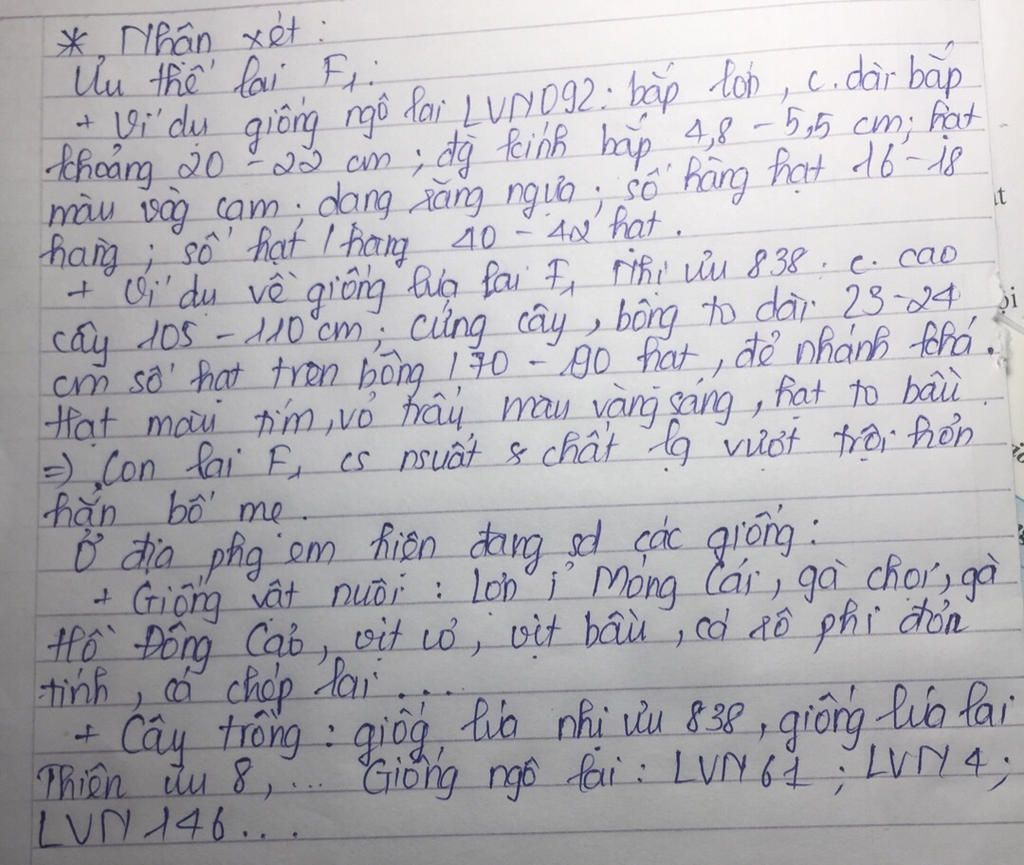 * Nhận xét:
Ưu thế lai F1:
+ Ví dụ giống ngô lai LVN092: bắp lớn, c.dài bắp
khoảng 20 - 22 cm; đg kính bắp 4,8 - 5,5 cm; hạt
màu vàg cam; dạng răng ngựa; số hàng hạt 16 - 18
hàng; số hạt / hàng 40 - 42 hạt.
+ Ví dụ về giống lúa lai F1 Nhị ưu 838: c. cao
cây 105 - 110 cm; cứng cây, bông to dài 23-24
cm số hạt trên bông 170 - 190 hạt, đẻ nhánh khá.
Hạt màu tím, vỏ trấu màu vàng sáng, hạt to bầu.
=> Con lai F1 cs nsuất & chất lg vượt trội hơn
hẳn bố mẹ.
Ở địa phg em hiện đang sd các giống:
+ Giống vật nuôi: lợn ỉ Móng Cái, gà chọi, gà
Hồ Đông Cảo, vịt cỏ, vịt bầu, cá rô phi đơn
tính, cá chép lai...
+ Cây trồng: giốg lúa nhị ưu 838, giống lúa lai
Thiên ưu 8, ... Giống ngô lai: LVN 61; LVN 4;
LVN 146...